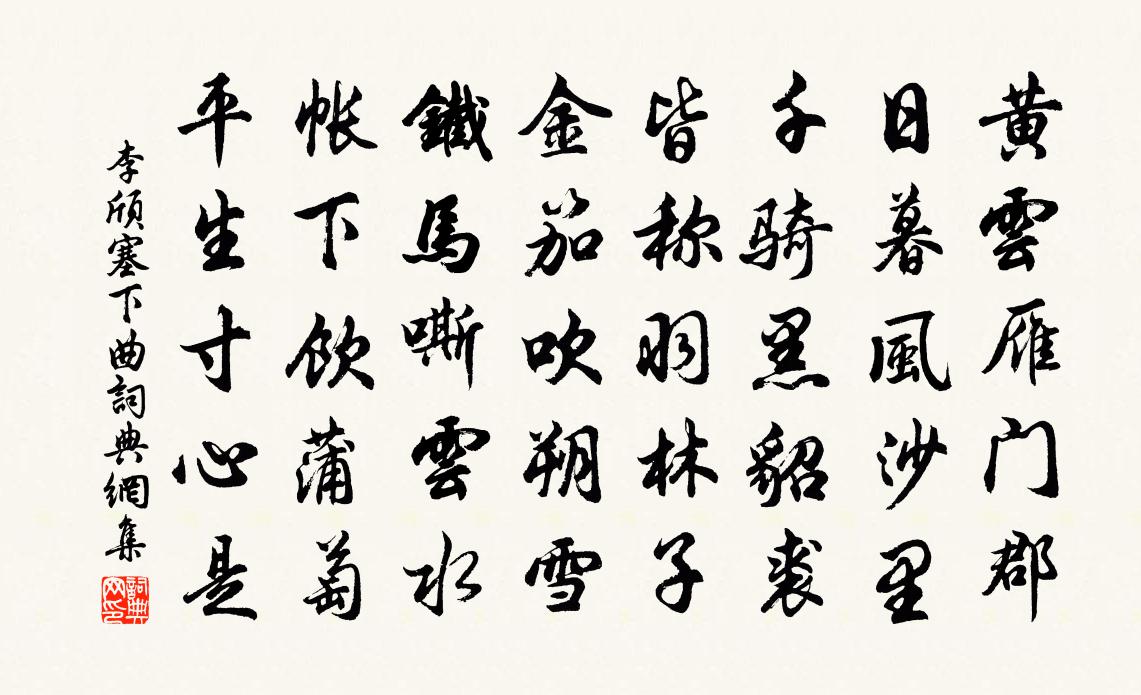 黄雲雁门郡
日暮風沙里
千骑黑貂裘
皆称羽林子
金笳吹朔雪
鐵馬嘶雲水
帐下飲蒲萄
平生寸心是
李頎塞下曲詞典網集
詞典網印